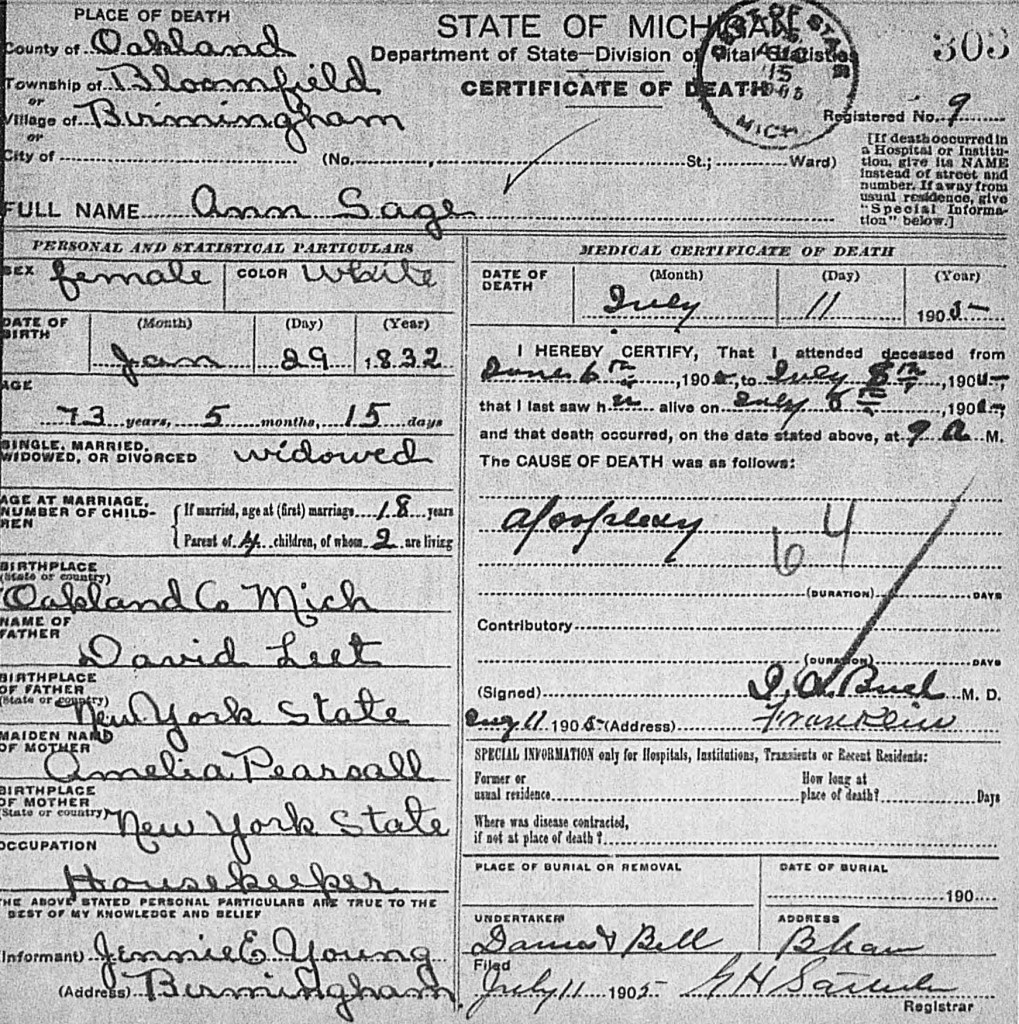 PLACE OF DEATH
County of Oakland
Township of Bloomfield
or
Village of Birmingham
or
City of (No. , St.; Ward)
STATE OF MICHIGAN
Department of State—Division of Vital Statistics
CERTIFICATE OF DEATH
15
MICH
303
Registered No. 9
[If death occurred in
a Hospital or Institu-
tion, give its NAME
instead of street and
number. If away from
usual residence, give
"Special Informa-
tion" below.]
FULL NAME Ann Sage
PERSONAL AND STATISTICAL PARTICULARS
SEX female COLOR White
DATE OF BIRTH (Month) (Day) (Year)
Jan 29 1832
AGE
73 years, 5 months, 15 days
SINGLE, MARRIED,
WIDOWED, OR DIVORCED widowed
AGE AT MARRIAGE,
NUMBER OF CHILD-
REN
If married, age at (first) marriage 18 years
Parent of 4 children, of whom 2 are living
BIRTHPLACE
(State or country)
Oakland Co Mich
NAME OF
FATHER
David Leet
BIRTHPLACE
OF FATHER
(State or country)
New York State
MAIDEN NAME
OF MOTHER
Amelia Pearsall
BIRTHPLACE
OF MOTHER
(State or country)
New York State
OCCUPATION
Housekeeper
THE ABOVE STATED PERSONAL PARTICULARS ARE TRUE TO THE
BEST OF MY KNOWLEDGE AND BELIEF
(Informant) Jennie E Young
(Address) Birmingham
MEDICAL CERTIFICATE OF DEATH
DATE OF
DEATH
(Month) (Day) (Year)
July 11 1905
I HEREBY CERTIFY, That I attended deceased from
June 6th, 1905, to July 8th, 1905,
that I last saw her alive on July 8th, 1905,
and that death occurred, on the date stated above, at 9 A M.
The CAUSE OF DEATH was as follows:
Apoplexy
64
(DURATION) DAYS
Contributory
(DURATION) DAYS
(Signed) M. D.
11 1905 (Address) Franklin
SPECIAL INFORMATION only for Hospitals, Institutions, Transients or Recent Residents:
Former or
usual residence
How long at
place of death? Days
Where was disease contracted,
if not at place of death?
PLACE OF BURIAL OR REMOVAL
DATE OF BURIAL
190
UNDERTAKER
& Bell
ADDRESS
B ham
Filed
July 11 1905 G H
Registrar